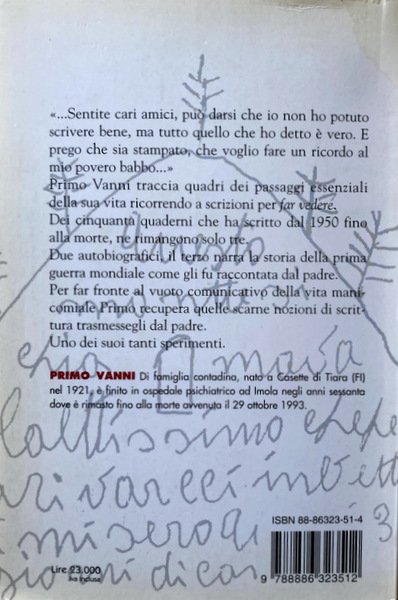 «...Sentite cari amici, può darsi che io non ho potuto
scrivere bene, ma tutto quello che ho detto è vero. E
prego che sia stampato, che voglio fare un ricordo al
mio povero babbo...»
Primo Vanni traccia quadri dei passaggi essenziali
della sua vita ricorrendo a scrizioni per far vedere.
Dei cinquanta quaderni che ha scritto dal 1950 fino
alla morte, ne rimangono solo tre.
Due autobiografici, il terzo narra la storia della prima
guerra mondiale come gli fu raccontata dal padre.
Per far fronte al vuoto comunicativo della vita mani-
comiale Primo recupera quelle scarne nozioni di scrit-
tura trasmessegli dal padre.
Uno dei suoi tanti sperimenti.
PRIMO VANNI Di famiglia contadina, nato a Casette di Tiara (FI)
nel 1921, è finito in ospedale psichiatrico ad Imola negli anni sessanta
dove è rimasto fino alla morte avvenuta il 29 ottobre 1993.
questo
maria
3
ISBN 88-86323-51-4
Lire 23.000
iva inclusa
9 788886 323512